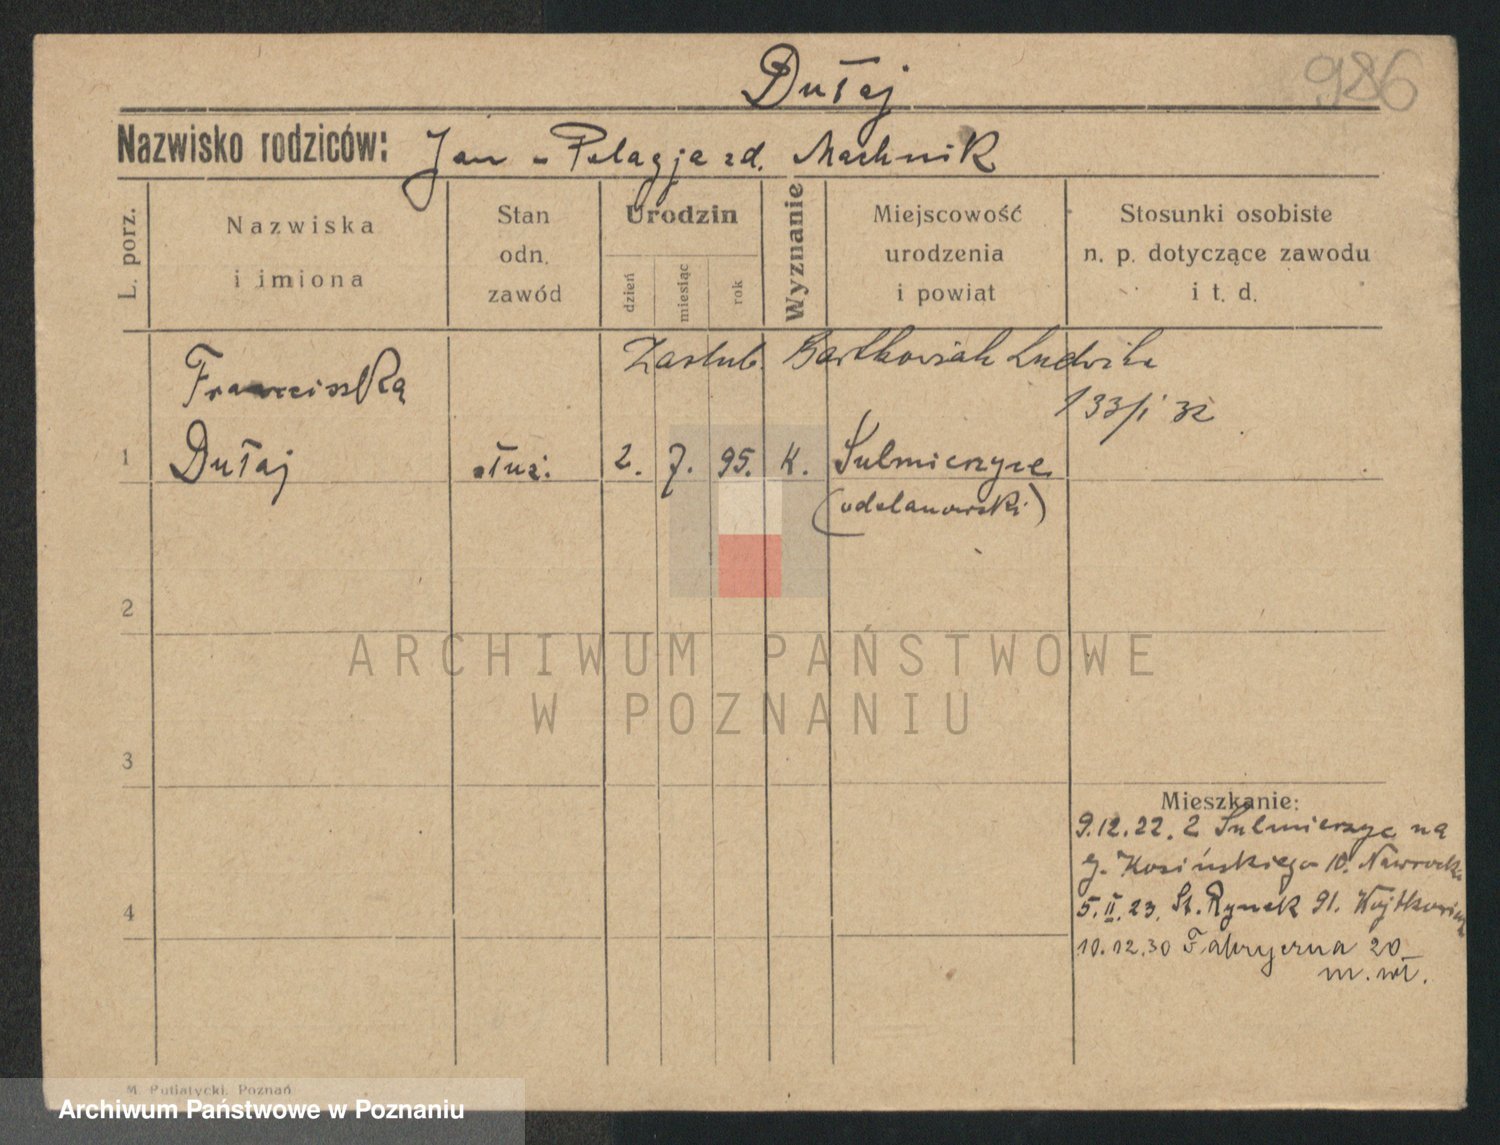 986
Dułaj
Nazwisko rodziców: Jan - Pelagja zd. Machnik
L. porz.
Nazwiska
i imiona
Stan
odn.
zawód
Urodzin
dzień
miesiąc
rok
Wyznanie
Miejscowość
urodzenia
i powiat
Stosunki osobiste
n. p. dotyczące zawodu
i t. d.
Zaslub. Bartkowiak Ludwika
133/I 32
Franciszka
1 Dułaj służ. 2. 7. 95. K. Sulmierzyce
(odolanowski)
2
ARCHIWUM PAŃSTWOWE
W POZNANIU
3
Mieszkanie:
9.12.22. z Sulmierzyc na
g. Kosińskiego 10. Nawrocka
4
5.II.23. St. Rynek 91. Wojtkowiak
10.12.30 Fabryczna 20
m. wł.
M. Putiatycki, Poznań
Archiwum Państwowe w Poznaniu